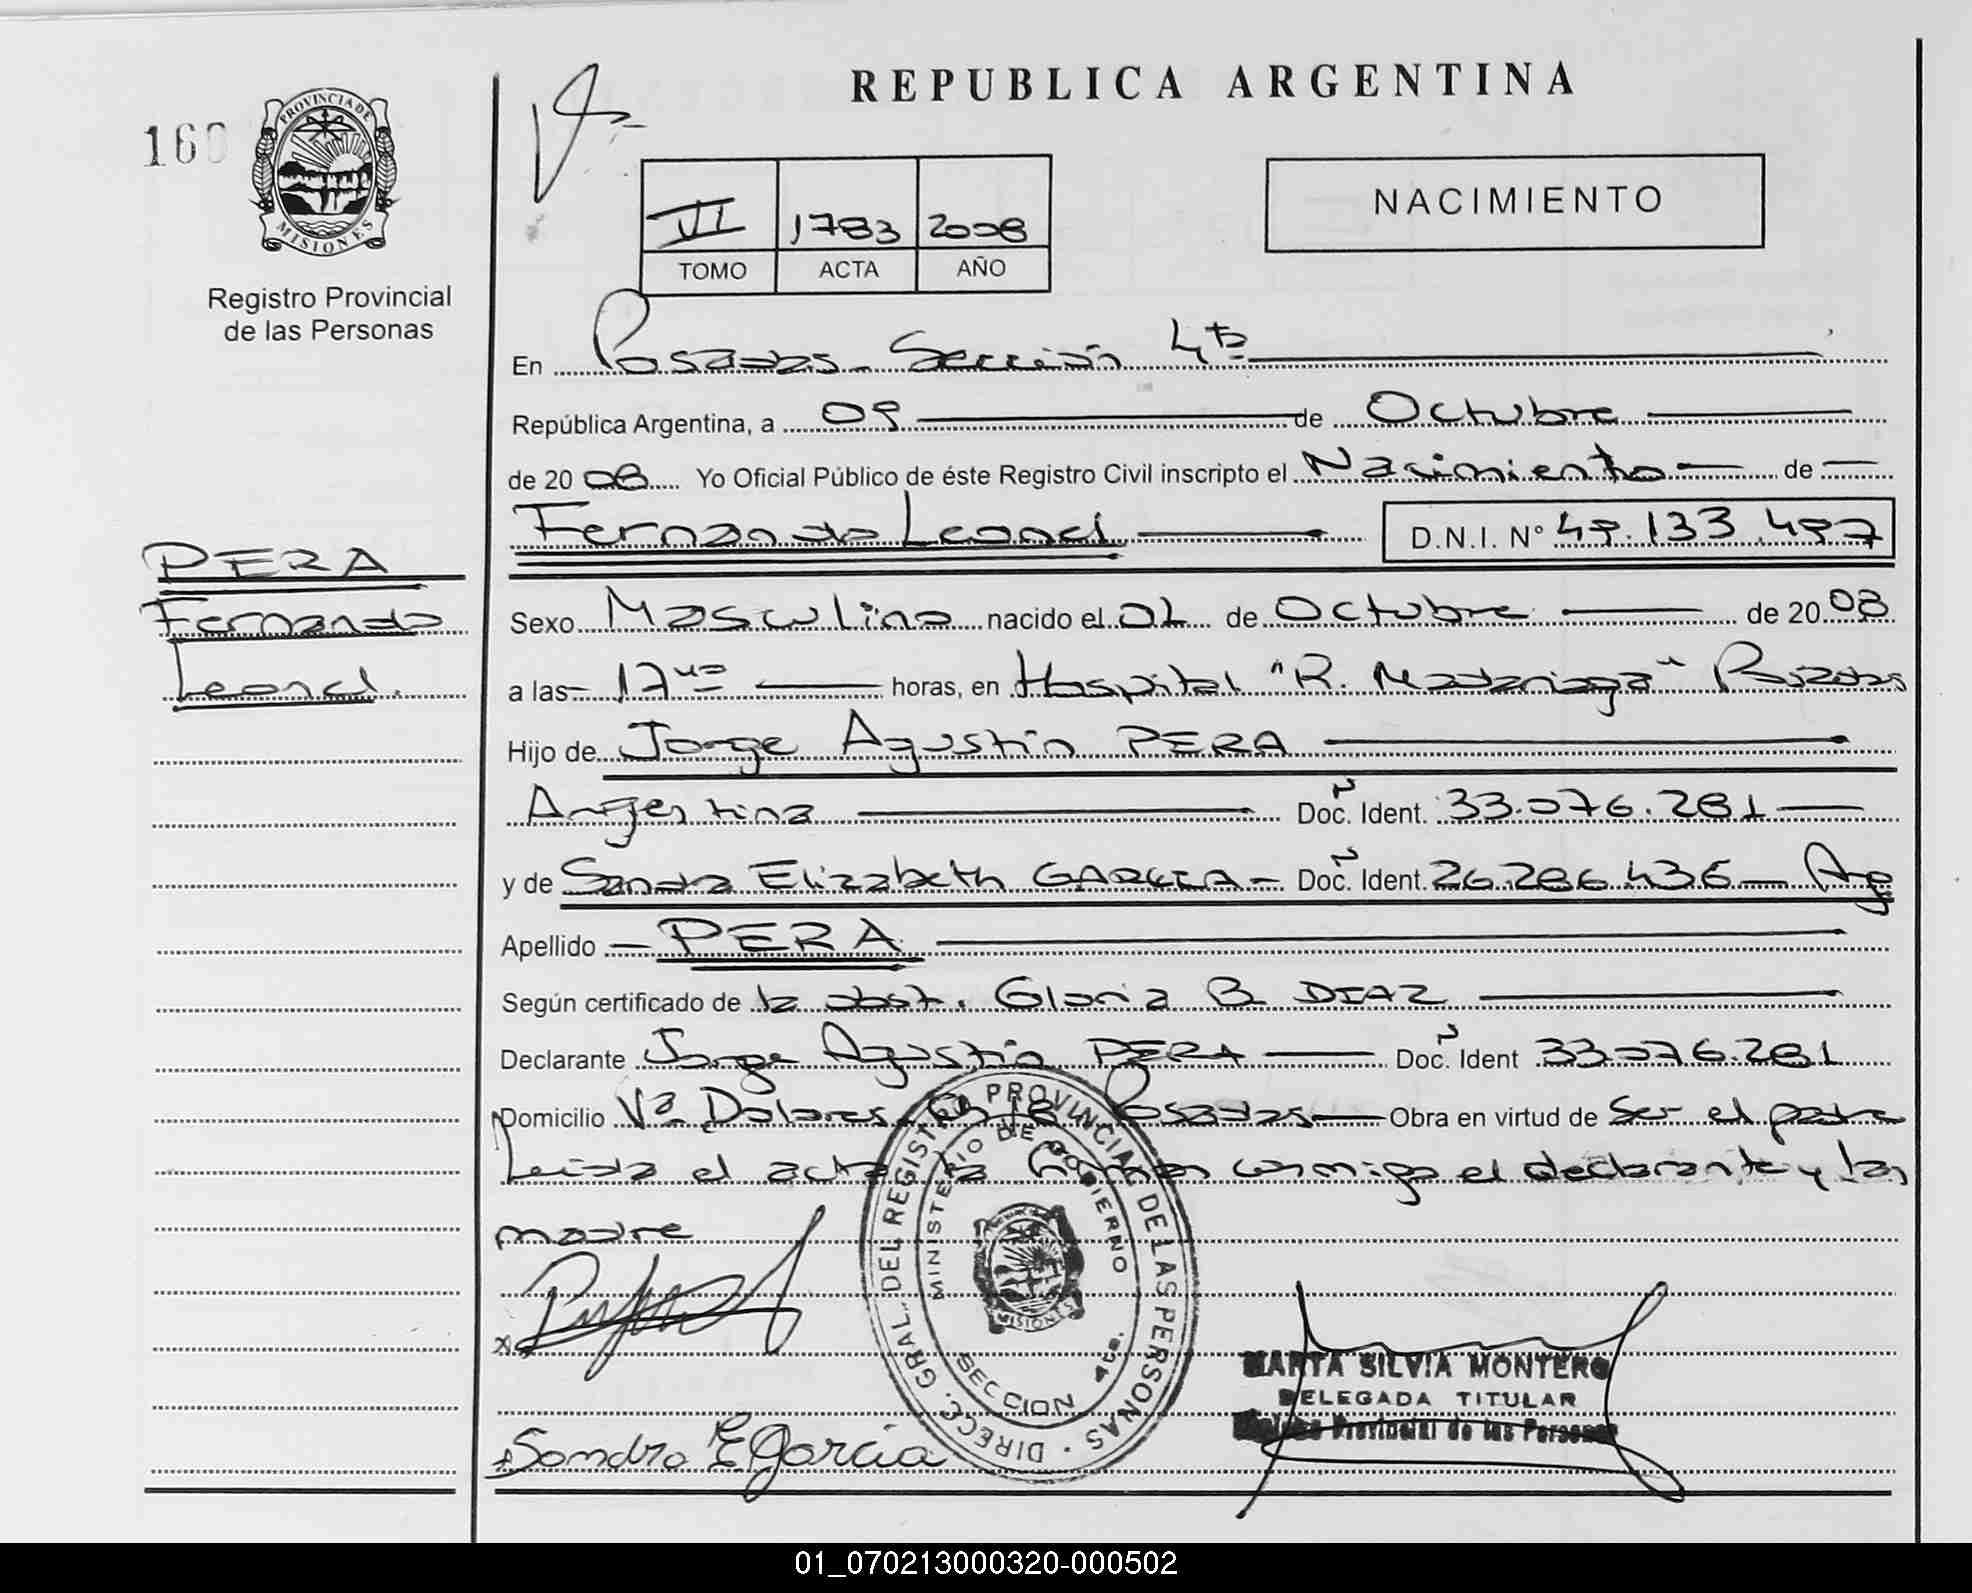 REPUBLICA ARGENTINA
160
PROVINCIA DE
MISIONES
Registro Provincial
de las Personas
VI 1783 2008
TOMO ACTA AÑO
NACIMIENTO
En Posadas - Sección 4ta
República Argentina, a 09 de Octubre
de 20 08 Yo Oficial Público de éste Registro Civil inscripto el Nacimiento de
Fernando Leonel D.N.I. N° 49.133.497
PERA
Fernando
Leonel.
Sexo Masculino nacido el 02 de Octubre de 20 08
a las 17 horas, en Hospital "R. Madariaga" Posadas
Hijo de Jorge Agustin PERA
Argentina Doc. Ident. 33.076.281
y de Sandra Elizabeth GARCIA - Doc. Ident. 26.286.436 - Arg
Apellido PERA
Según certificado de la obst. Gloria B DIAZ
Declarante Jorge Agustin PERA Doc. Ident 33.076.281
Domicilio Va Dolores Posadas Obra en virtud de Ser el padre
Leida el acta la firman conmigo el declarante y la
madre
DIRECC. GRAL. DEL REGISTRO PROVINCIAL DE LAS PERSONAS
MINISTERIO DE GOBIERNO
MISIONES
SECCION 4ta.
MARTA SILVIA MONTERO
DELEGADA TITULAR
Registro Provincial de las Personas
Sandra E Garcia
01_070213000320-000502